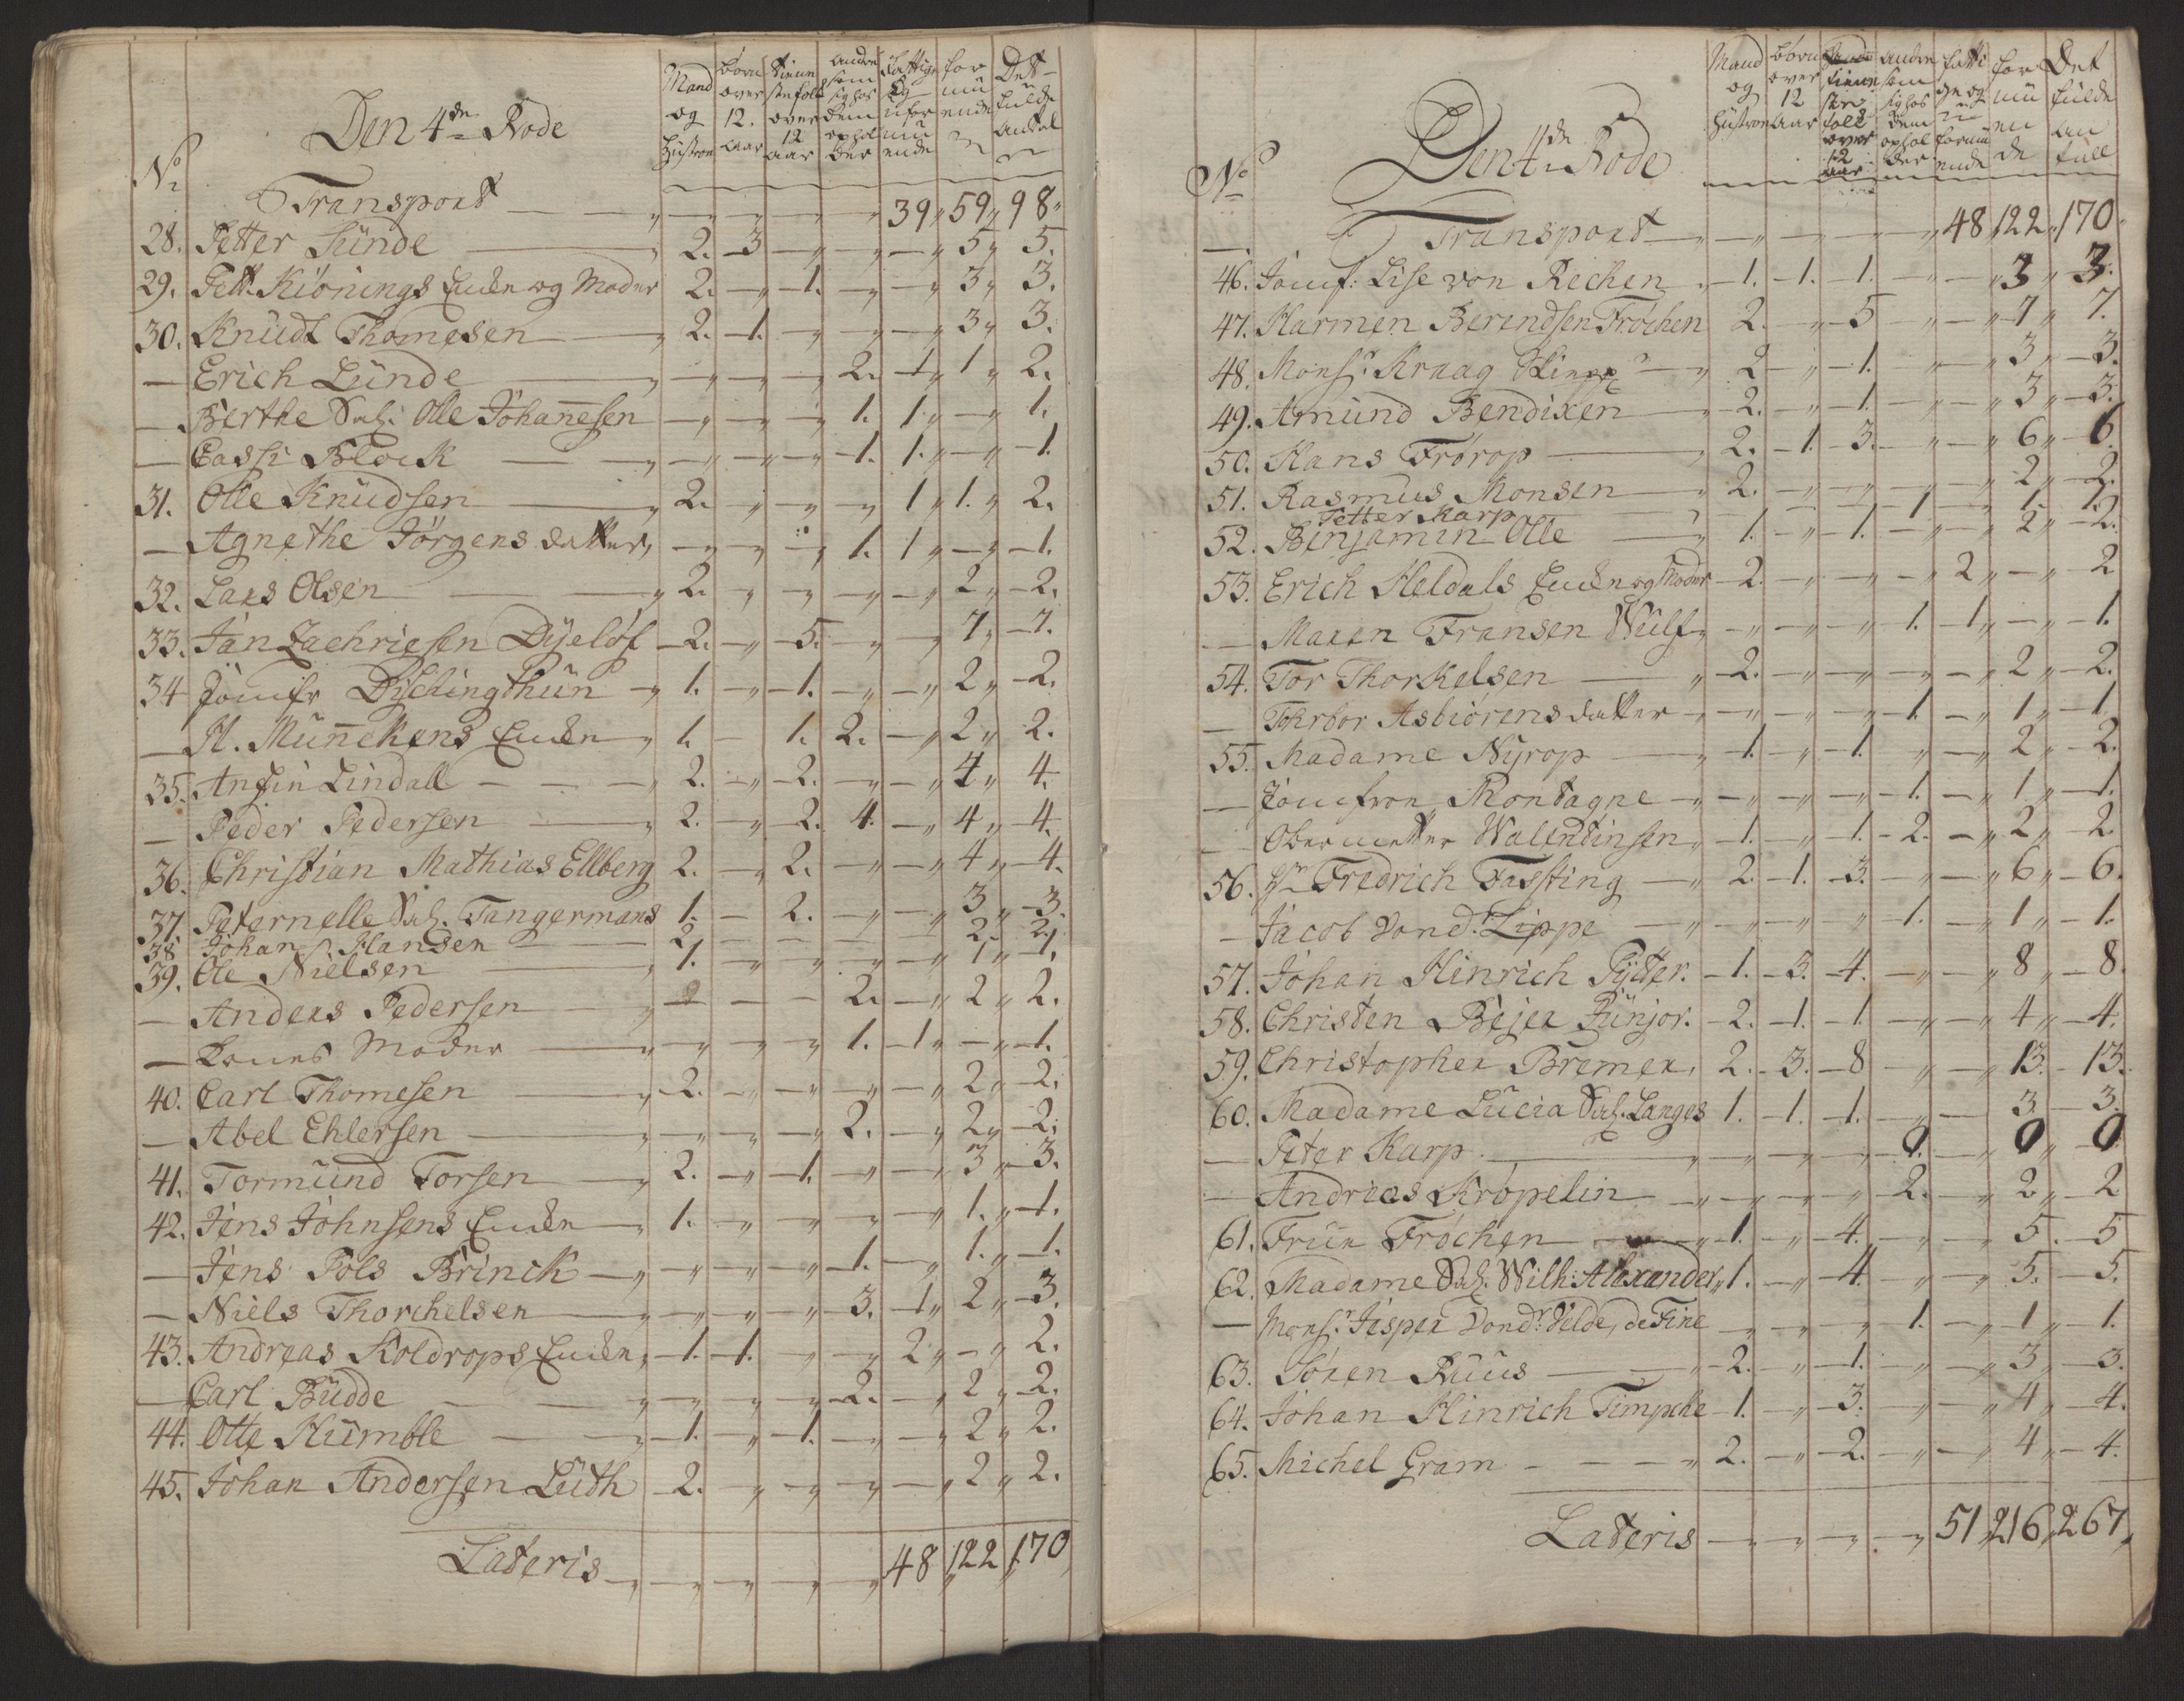 Den 4de Rode
No
Mand og Hustroe
børn over 12. aar
tienestefolk over 12 aar
andre som sig hos dem opholder
fattige og uformuende
formuende
Det fulde antal
Transport 39 59 98
28. Petter Sünde 2. 3 5 5.
29. Pett. Kiönings Encke og Moder 2. 1. 3 3.
30. Knüdt Thomesen 2. 1. 3 3.
Erich Lünde 2. 1 1 2.
Berthe Sal. Olle Johannesen 1. 1. 1.
Cassi Block 1. 1. 1.
31. Olle Knüdsen 2. 1 1. 2.
Agnethe Jörgens datter 1. 1 1.
32. Lars Olsen 2. 2 2.
33. Jan Zachriesen Dÿelöf 2. 5. 7 7.
34 Jomfr Dÿchingthün 1. 1. 2 2.
H. Münnckens Encke 1. 1. 2. 2 2.
35. Anfin Lindall 2. 2. 4 4.
Peder Pedersen 2. 2. 4. 4 4.
36. Christian Mathias Ellberg 2. 2. 4 4.
37. Peternelle Sal. Tangermans 1. 2. 3 3.
38 Johan Hansen 2 2 2
39. Ole Nielsen 1. 1 1.
Anders Pedersen 2 2. 2 2.
Moder 1. 1 1.
40. Carl Thomesen 2. 2 2.
Abel Ehlersen 2. 2 2.
41. Tormünd Torsen 2. 1. 3 3.
42. Jens Johnsens Encke 1. 1. 1.
Jens Pols Brinck 1. 1. 1.
Niels Thorchelsen 3. 1 2 3.
43. Andreas Koldrops Encke 1. 1. 2 2.
Carl Büdde 2. 2 2.
44. Otte Hümble 1. 1. 2 2.
45. Johan Andersen Lüth 2. 2 2.
Lateris 48 122 170
Den 4de Rode
No
Mand og Hustroe
børn over 12 aar
tienestefolk over 12 aar
andre som sig hos dem opholder
fattige og uformuende
formuende
Det fulde antall
Transport 48 122 170
46. Jomf: Lise von Rechen 1. 1. 1. 3 3.
47. Harmen Berendsen Fröchen 2. 5 7 7.
48. Monsr. Kraag 2 1. 3 3.
49. Amünd Bendixen 2. 1. 3 3.
50. Hans Frörop 2. 1. 3. 6 6.
51. Rasmus Monsen 2. 2 2.
Petter Karp 1 1 1
52. Benjamin Olle 1. 1. 2 2.
53. Erich Heldals Encke og Moder 2. 2 2
Maren Fransen Wülf 1. 1 1.
54. Tor Thorkelsen 2. 2 2.
Thorbor Asbiörensdatter 1. 1 1
55. Madame Nÿrop 1. 1. 2 2.
Jomfroe Montagne 1. 1 1.
Walentinsen 1. 1. 2. 2 2
56. Hr Fredrich Fassting 2. 1. 3. 6 6.
Jacob Vond. Lippe 1. 1 1.
57. Johan Hinrich Pÿtter. 1. 3. 4. 8 8.
58. Christen Bejer Jünjor. 2. 1. 1. 4 4.
59. Christopher Bremer 2. 3. 8 13. 13.
60. Madame Lücia Sal. Langes 1. 1. 1. 3 3.
Peter Karp 0. 0 0
Andreas Kröpelin 2. 2 2
61. Früe Fröchen 1. 4. 5. 5
62. Madame Sal. Wilh: Alexander 1. 4. 5. 5.
Monsr. Jesper Vondr. Velde, de Fine 1. 1 1.
63. Sören Rüüs 2. 1. 3 3.
64. Johan Hinrich Timpche 1. 3. 4 4.
65. Michel Gram 2. 2. 4 4.
Lateris 51 216 267